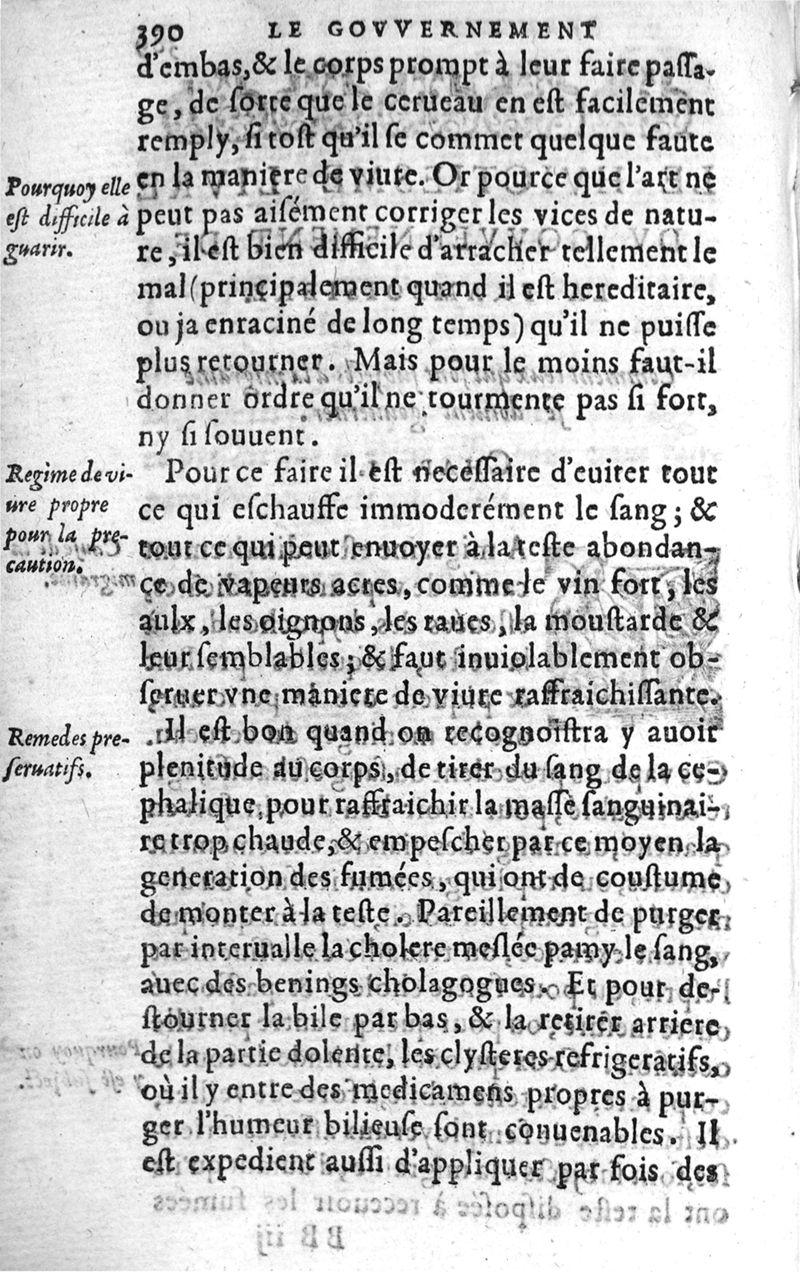 390 LE GOVVERNEMENT
d'embas, & le corps prompt à leur faire passa-
ge, de sorte que le cerueau en est facilement
remply, si tost qu'il se commet quelque faute
en la maniere de viure. Or pource que l'art ne
Pourquoy elle
est difficile à
guarir.
peut pas aisément corriger les vices de natu-
re, il est bien difficile d'arracher tellement le
mal (principalement quand il est hereditaire,
ou ja enraciné de long temps) qu'il ne puisse
plus retourner. Mais pour le moins faut-il
donner ordre qu'il ne tourmente pas si fort,
ny si souuent.
Regime de vi-
ure propre
pour la pre-
caution.
Pour ce faire il est necessaire d'euiter tout
ce qui eschauffe immoderément le sang; &
tout ce qui peut enuoyer à la teste abondan-
ce de vapeurs acres, comme le vin fort, les
aulx, les oignons, les raues, la moustarde &
leur semblables; & faut inuiolablement ob-
seruer vne maniere de viure raffraichissante.
Remedes pre-
seruatifs.
Il est bon quand on recognoistra y auoir
plenitude au corps, de tirer du sang de la ce-
phalique, pour raffraichir la masse sanguinai-
re trop chaude, & empescher par ce moyen la
generation des fumées, qui ont de coustume
de monter à la teste. Pareillement de purger
par interualle la cholere meslée pamy le sang,
auec des benings cholagogues. Et pour de-
stourner la bile par bas, & la retirer arriere
de la partie dolente, les clysteres refrigeratifs,
où il y entre des medicamens propres à pur-
ger l'humeur bilieuse sont conuenables. Il
est expedient aussi d'appliquer par fois des